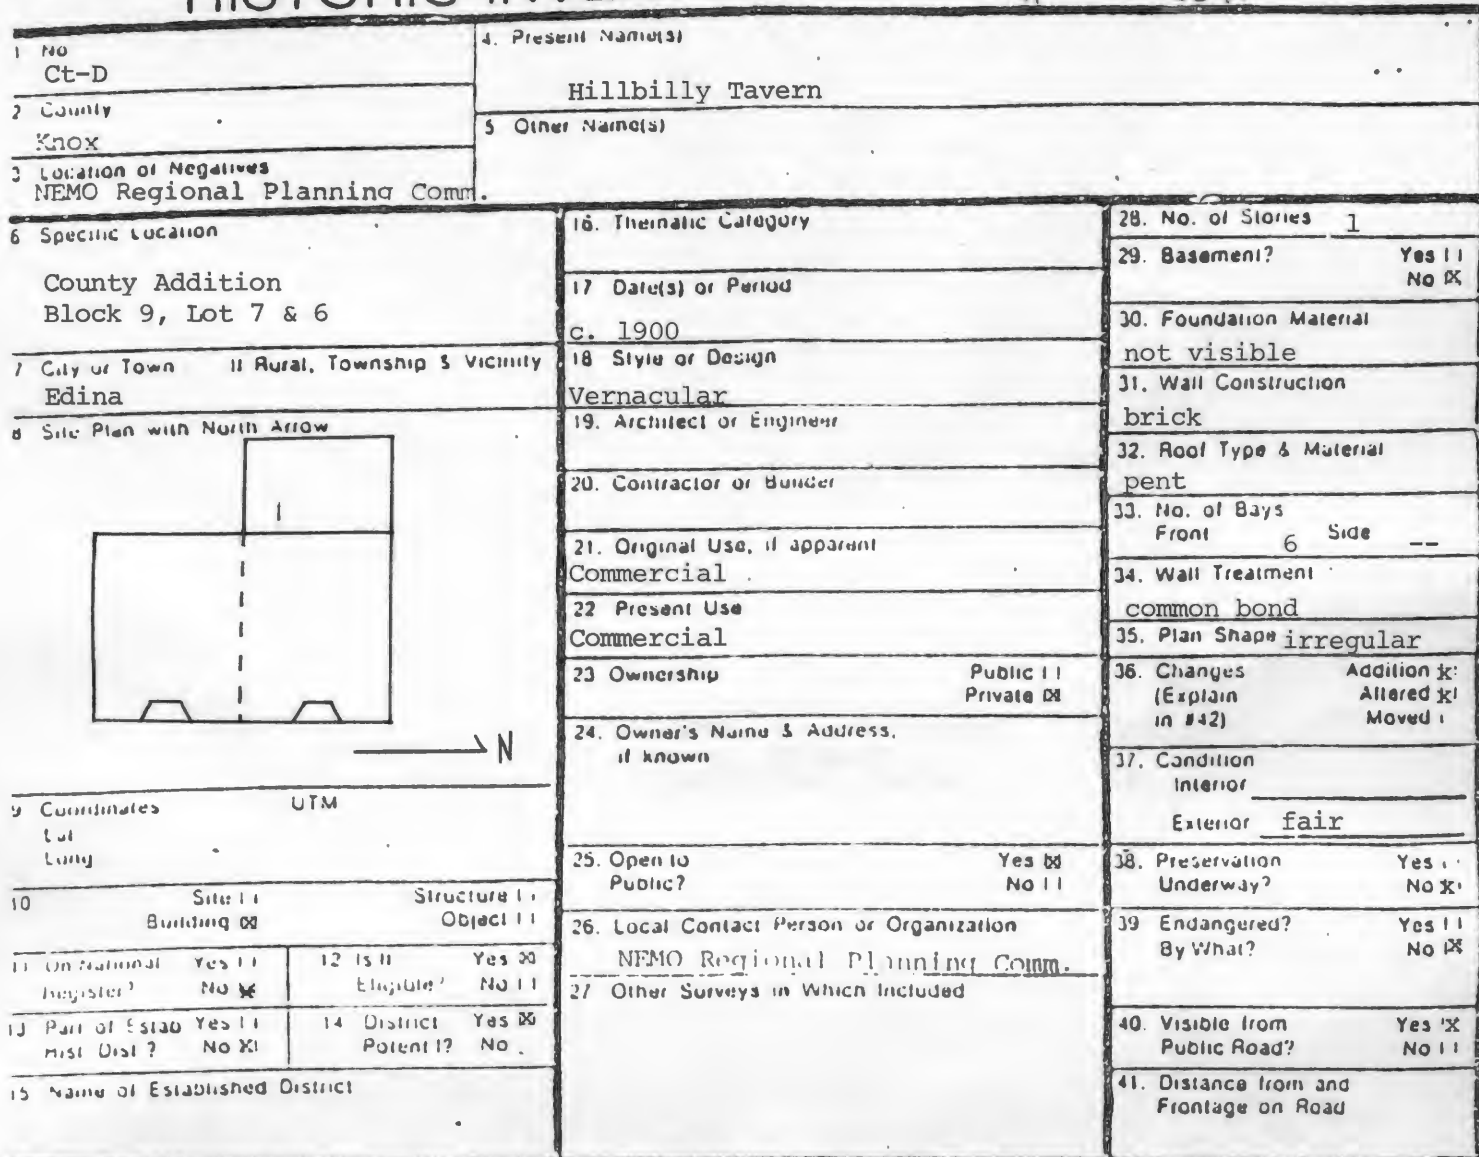 HISTORIC INVE
1 No
Ct-D
2 County
Knox
3 Location of Negatives
NEMO Regional Planning Comm.
4. Present Name(s)
Hillbilly Tavern
5 Other Name(s)
6 Specific Location
County Addition
Block 9, Lot 7 & 6
7 City or Town If Rural, Township & Vicinity
Edina
8 Site Plan with North Arrow
N
9 Coordinates UTM
Lat
Long
10 Site Structure
Building Object
11 On National Yes
Register? No
12 Is It Yes
Eligible? No
13 Part of Estab Yes
Hist Dist? No
14 District Yes
Potent'l? No
15 Name of Established District
16. Thematic Category
17 Date(s) or Period
c. 1900
18 Style or Design
Vernacular
19. Architect or Engineer
20. Contractor or Builder
21. Original Use, if apparent
Commercial
22 Present Use
Commercial
23 Ownership Public
Private
24. Owner's Name & Address,
if known
25. Open to Yes
Public? No
26. Local Contact Person or Organization
NEMO Regional Planning Comm.
27 Other Surveys in Which Included
28. No. of Stories 1
29. Basement? Yes
No
30. Foundation Material
not visible
31. Wall Construction
brick
32. Roof Type & Material
pent
33. No. of Bays
Front 6 Side --
34. Wall Treatment
common bond
35. Plan Shape irregular
36. Changes Addition x
(Explain Altered x
in #42) Moved
37. Condition
Interior
Exterior fair
38. Preservation Yes
Underway? No x
39 Endangered? Yes
By What? No X
40. Visible from Yes X
Public Road? No
41. Distance from and
Frontage on Road